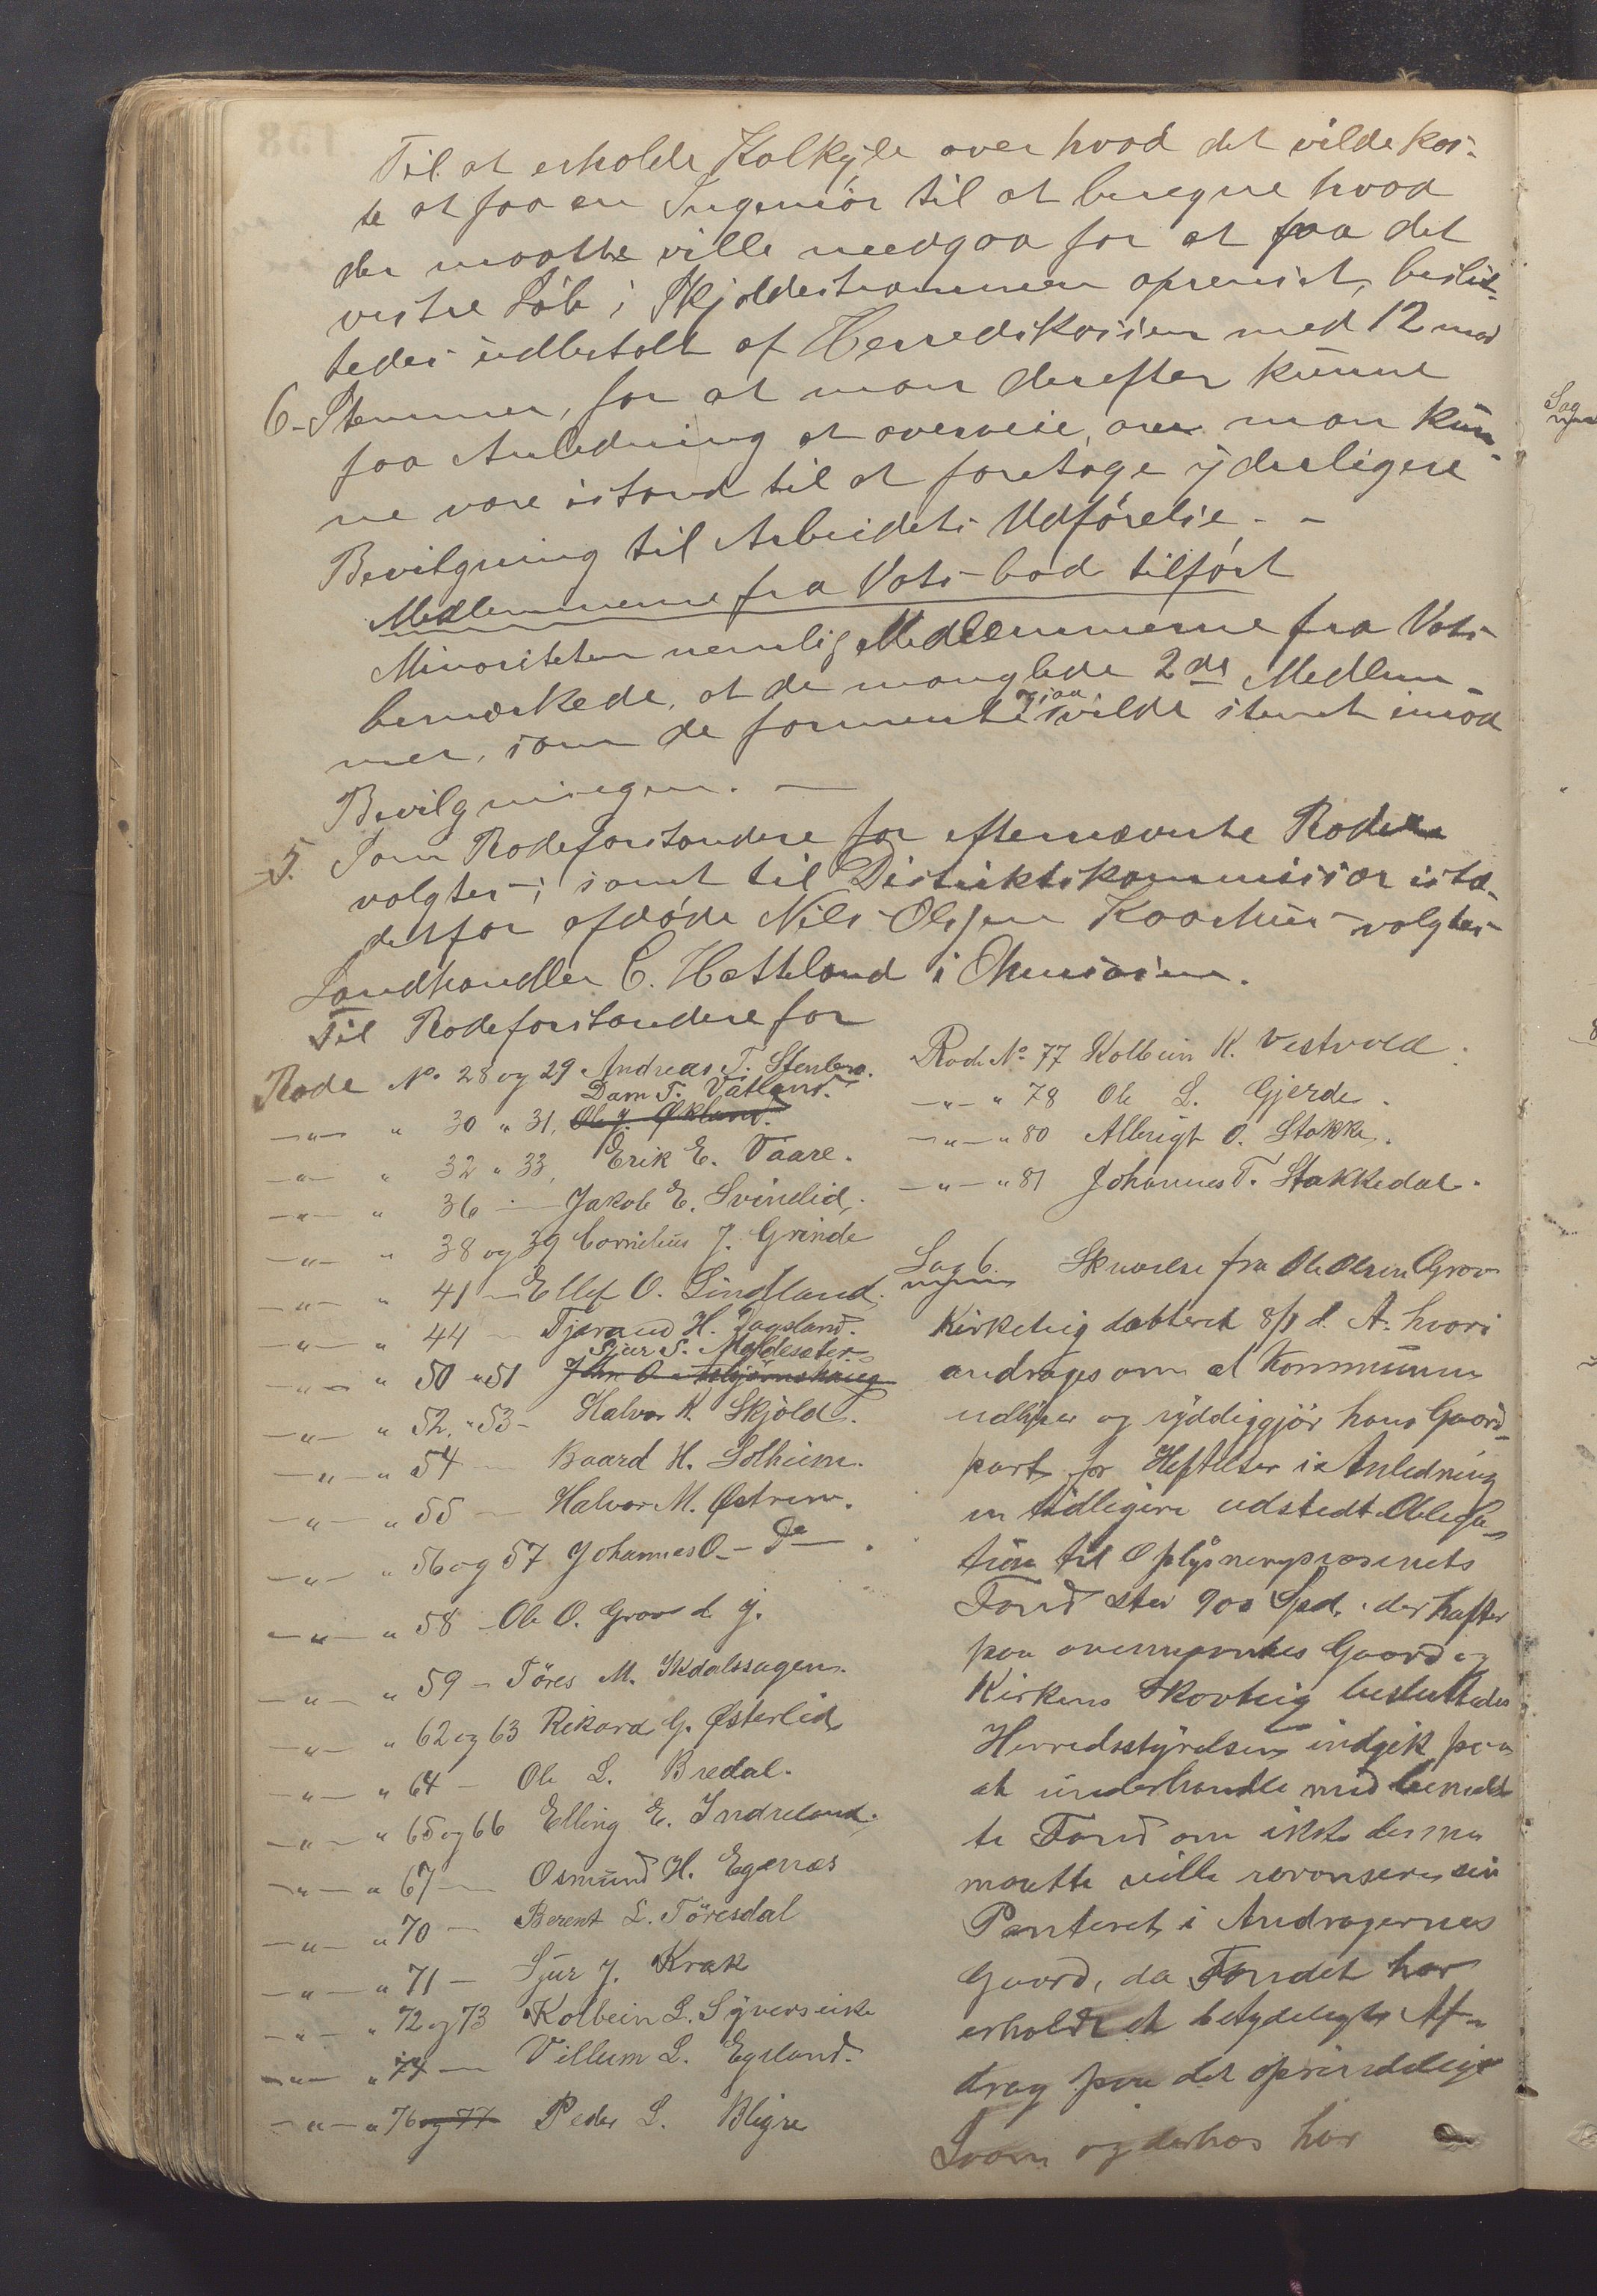 Til at erholde Kalkyle over hvad det vilde kos-
te at faa en Ingeniør til at beregne hvad
der maatte ville medgaa for at faa det
vestre Løb i Skjoldestrømmen oprenset, beslut-
tedes udbetalt af Herredskassen med 12 mod
6 Stemmer, for at man derefter kunne
faa Anledning at overveie, om man kun-
ne være istand til at foretage yderligere
Bevilgning til Arbeidets Udførelse. -
Medlemmerne fra Vats bad tilført
Minoriteten nemlig Medlemmerne fra Vats
bemærkede, at de manglede 2de Medlem-
mer, som de formente ogsaa vilde stemt imod
Bevilgningen. —
5. Som Rodeforstandere for efternævnte Roder
valgtes; samt til Distriktskommissær iste-
detfor afdøde Nils Olsen Kaarhus valgtes
Landhandler C. Hetteland i Ølensøen.
Til Rodeforstandere for
Rode No. 28 og 29 Andreas T. Stenberg.
Dam T. Vatland.
—"— " 30 " 31, Ole J. Økland.
—"— " 32 " 33, Erik E. Vaare.
—"— " 36 — Jakob E. Svindlid.
—"— " 38 og 39 Cornelius J. Grinde
—"— " 41 — Ellef O. Lindtland.
—"— " 44 — Tjerand H. Dagsland.
Sjur S. Moldesæter
—"— " 50 " 51 John O. Asbjørnshaug
—"— " 52 " 53 - Halvor K. Skjold.
—"— " 54 — Baard H. Solheim.
—"— " 55 — Halvor M. Østrem.
—"— " 56 og 57 Johannes O. - Do — .
—"— " 58 - Ole O. Grov d. y.
—"— " 59 - Töres M. Isdalssagen.
—"— " 62 og 63 Rikard G. Østerlid
—"— " 64 - Ole L. Bredal.
—"— " 65 og 66 Elling E. Indreland.
—"— " 67 — Osmund H. Egenæs
—"— " 70 — Berent L. Töresdal
—"— " 71 — Sjur J. Krak
—"— " 72 og 73 Kolbein L. Syverseike
—"— " 74 — Villum L. Egeland.
—"— " 76 og 77 Peder L. Bligre
Rode No. 77 Kolbein K. Vestvold.
—"— " 78 Ole L. Gjerde.
—"— " 80 Albrigt O. Stakke.
—"— " 81 Johannes T. Stakkedal.
Sag 6. Skrivelse fra Ole Olsen Grov
Kirketeig datteret 8/8 d. A. hvori
andrages om at Kommunen
udløser og ryddiggjør hans Gaard-
part for Heftelser i Anledning
en tidligere udstedt Obliga-
tion til Oplysningsvæsenets
Fond stor 900 Spd. der hefter
paa ovennævntes Gaard og
Kirkens Skovteig besluttedes
Herredsstyrelsen indgik paa
at underhandle med bemeld-
te Fond om ikke denne
maatte ville renonsere sin
Panteret i Andragernes
Gaard, da Fondet har
erholdt et betydeligt Af-
drag paa det oprindelige
Laan og derhos har